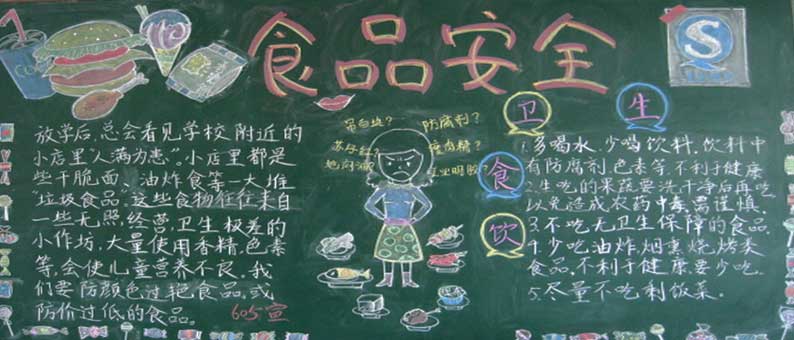 食品安全
S
放学后,总会看见学校附近的
小店里"人满为患"。小店里都是
些干脆面、油炸食等一大堆
垃圾食品,这些食物往往来自
一些无照,经营,卫生极差的
小作坊,大量使用香精,色素
等,会使儿童营养不良。我
们要防颜色过艳食品,或
防价过低的食品。 605宣
吊白块?
防腐剂?
苏丹红?
瘦肉精?
地沟油?
工业明胶?
卫
生
食
饮
1.多喝水,少喝饮料,饮料中
有防腐剂、色素等,不利于健康
2.生吃的果蔬要洗干净后再吃
以免造成农药中毒,需谨慎.
3.不吃无卫生保障的食品
4.少吃油炸,烟熏,烧烤类
食品,不利于健康要少吃.
5.尽量不吃剩饭菜。